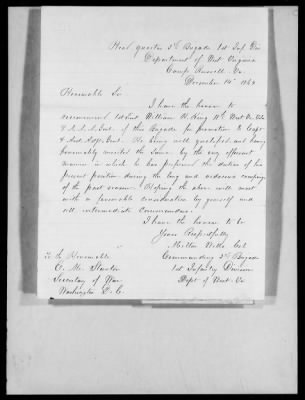 Head quarters 3d Brigade 1st Inf. Div
Department of West Virginia
Camp Russell Va.
December 14th 1864
Honorable Sir
I have the honor to
recommend 1st Lieut. William H. King West Va. Vols
& A.A.A. Genl. of this Brigade for promotion to Capt
& Asst. Adjt. Genl. He being well qualified and having
honorably merited the same by the very efficient
manner in which he has performed the duties of his
present position during the long and arduous campaign
of the past season. Hoping the above will meet
with a favorable consideration by yourself and
all intermediate Commanders.
I have the honor to be
Yours Respectfully
Milton Wells Col
Commanding 3d Brigade
1st Infantry Division
Dept of West. Va
To the Honorable
E. M. Stanton
Secretary of War
Washington D.C.